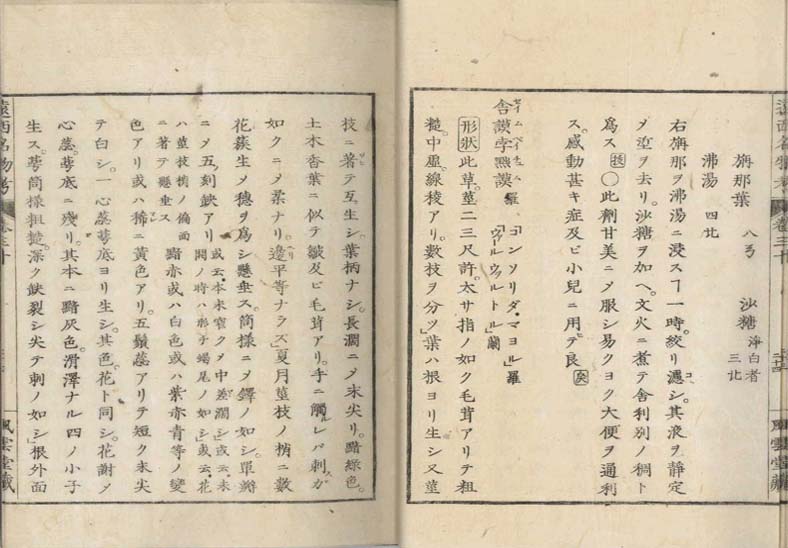 旃那葉 八弓 沙糖 淨白者 三比
沸湯 四比
右旃那ヲ沸湯ニ浸スヿ一時。絞リ濾シ。其液ヲ靜定
メ滓ヲ去リ。沙糖ヲ加ヘ。文火ニ煮テ舍利別ノ稠ト
爲ス 〇此劑甘美ニメ服シ易クヨク大便ヲ通利
ス。感動甚キ症及ビ小兒ニ用テ良
セイム ヘイチユム
「コンソリダ・マヨル」羅
「ワールウルトル」蘭
形狀 此草。莖二三尺許。太サ指ノ如ク毛茸アリテ粗
糙。中空。線稜アリ。數枝ヲ分ツ」葉ハ根ヨリ生シ又莖
枝ニ著テ互生シ葉柄ナシ。長濶ニメ末尖リ。黯綠色。
土木香葉ニ似テ皺及ビ毛茸アリ。手ニ觸レバ刺スガ
如クニメ柔ナリ。邊平等ナラズ」夏月莖枝ノ梢ニ數
花簇生メ穗ヲ爲シ懸垂ス。筒樣ニメ鐸ノ如シ。單瓣
ニメ五刻缺アリ 或云本末窄クメ中濶シ」或云未
開ノ時ハ形チ蝎尾ノ如シ」或云花
ハ莖枝梢ノ偏面
ニ著テ懸垂ス 黯赤或ハ白色或ハ紫赤靑等ノ變
色アリ或ハ稀ニ黃色アリ。五鬚蕊アリテ短ク末尖
テ白シ。一心蕊萼底ヨリ生シ。其色。花ト同シ。花謝メ
心蕊。萼底ニ殘リ。其本ニ黯灰色。滑澤ナル四ノ小子
生ス。萼筒樣粗糙。深ク鈌裂シ尖テ刺ノ如シ」根外面
遠西名物考 卷三十
風雲堂藏